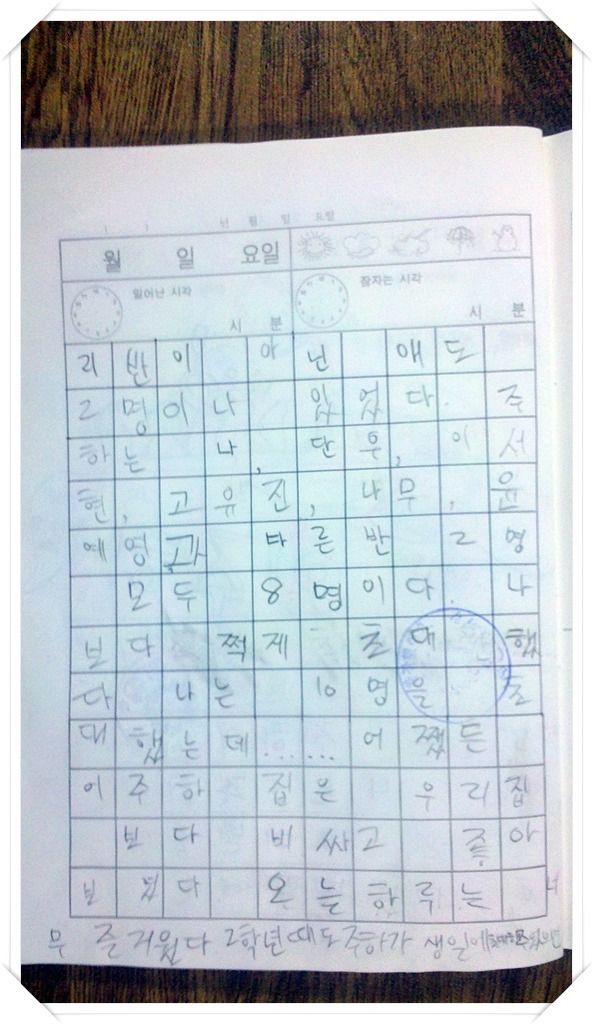 년 월 일 요일
월 일 요일
일어난 시각 잠자는 시각
시 분 시 분
리반이 아닌 애도
2명이나 있었다. 주
하는 나, 단우, 이서
현, 고유진, 나무, 윤
예영과 다른반 2명
모두 8명이다. 나
보다 쩍게 초대 했
다 나는 10명을 초
대했는데...... 어쨌든
이주하 집은 우리집
보다 비싸고 좋아
보였다 오늘하루는 너
무 즐거웠다 2학년때도 주하가 생일에